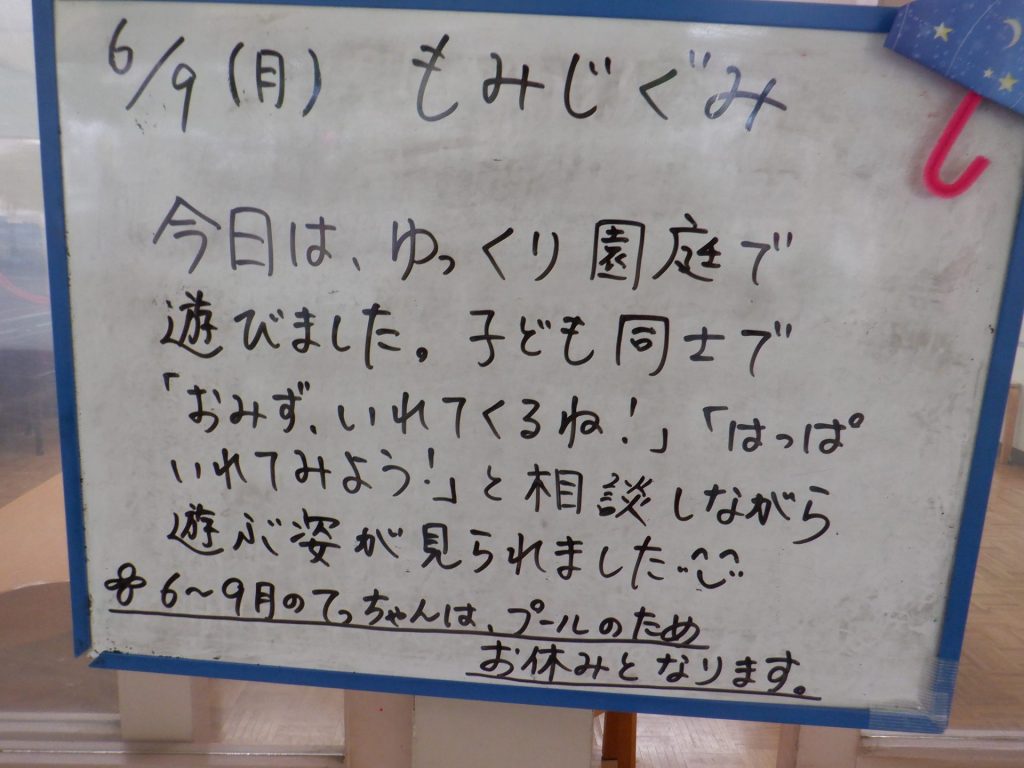 6/9(月) もみじぐみ
今日は、ゆっくり園庭で
遊びました。子ども同士で
「おみず、いれてくるね!」「はっぱ
いれてみよう!」と相談しながら
遊ぶ姿が見られました
6〜9月のてっちゃんは、プールのため
お休みとなります。